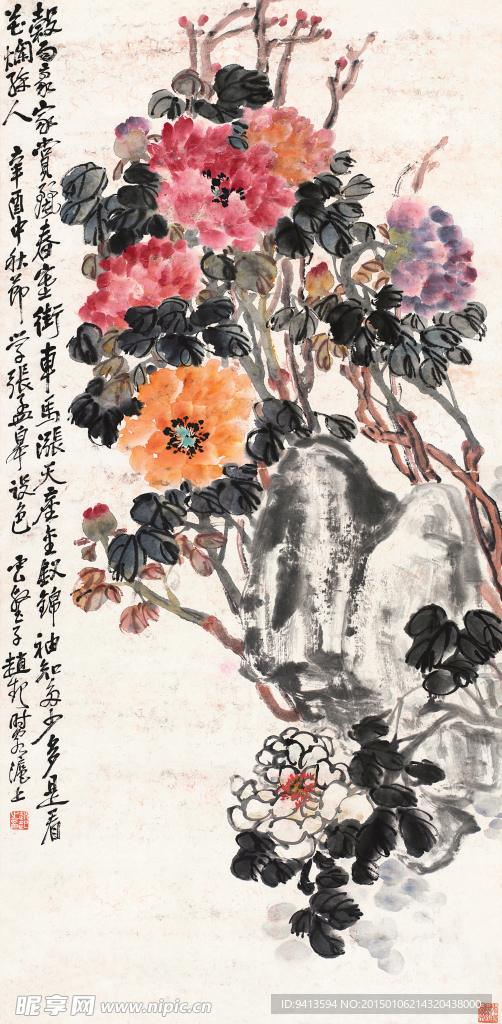 穀雨豪家賞麗春塞街車馬漲天塵金釵錦袖知多少多是看
花爛醉人 辛酉中秋節 学張孟皋設色 雲壑子趙起時客滬上
昵享网 www.nipic.cn
ID:9413594 NO:20150106214320438000